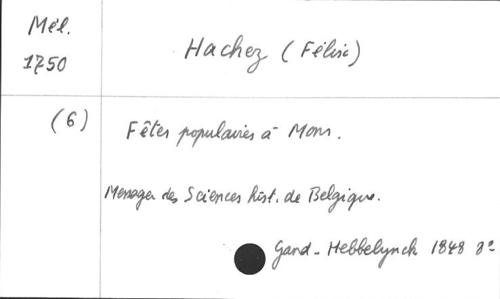 Mél.
1750
Hachez (Félix)
(6)
Fêtes populaires à Mons.
Messager des Sciences hist. de Belgique.
Gand - Hebbelynck 1848 8°